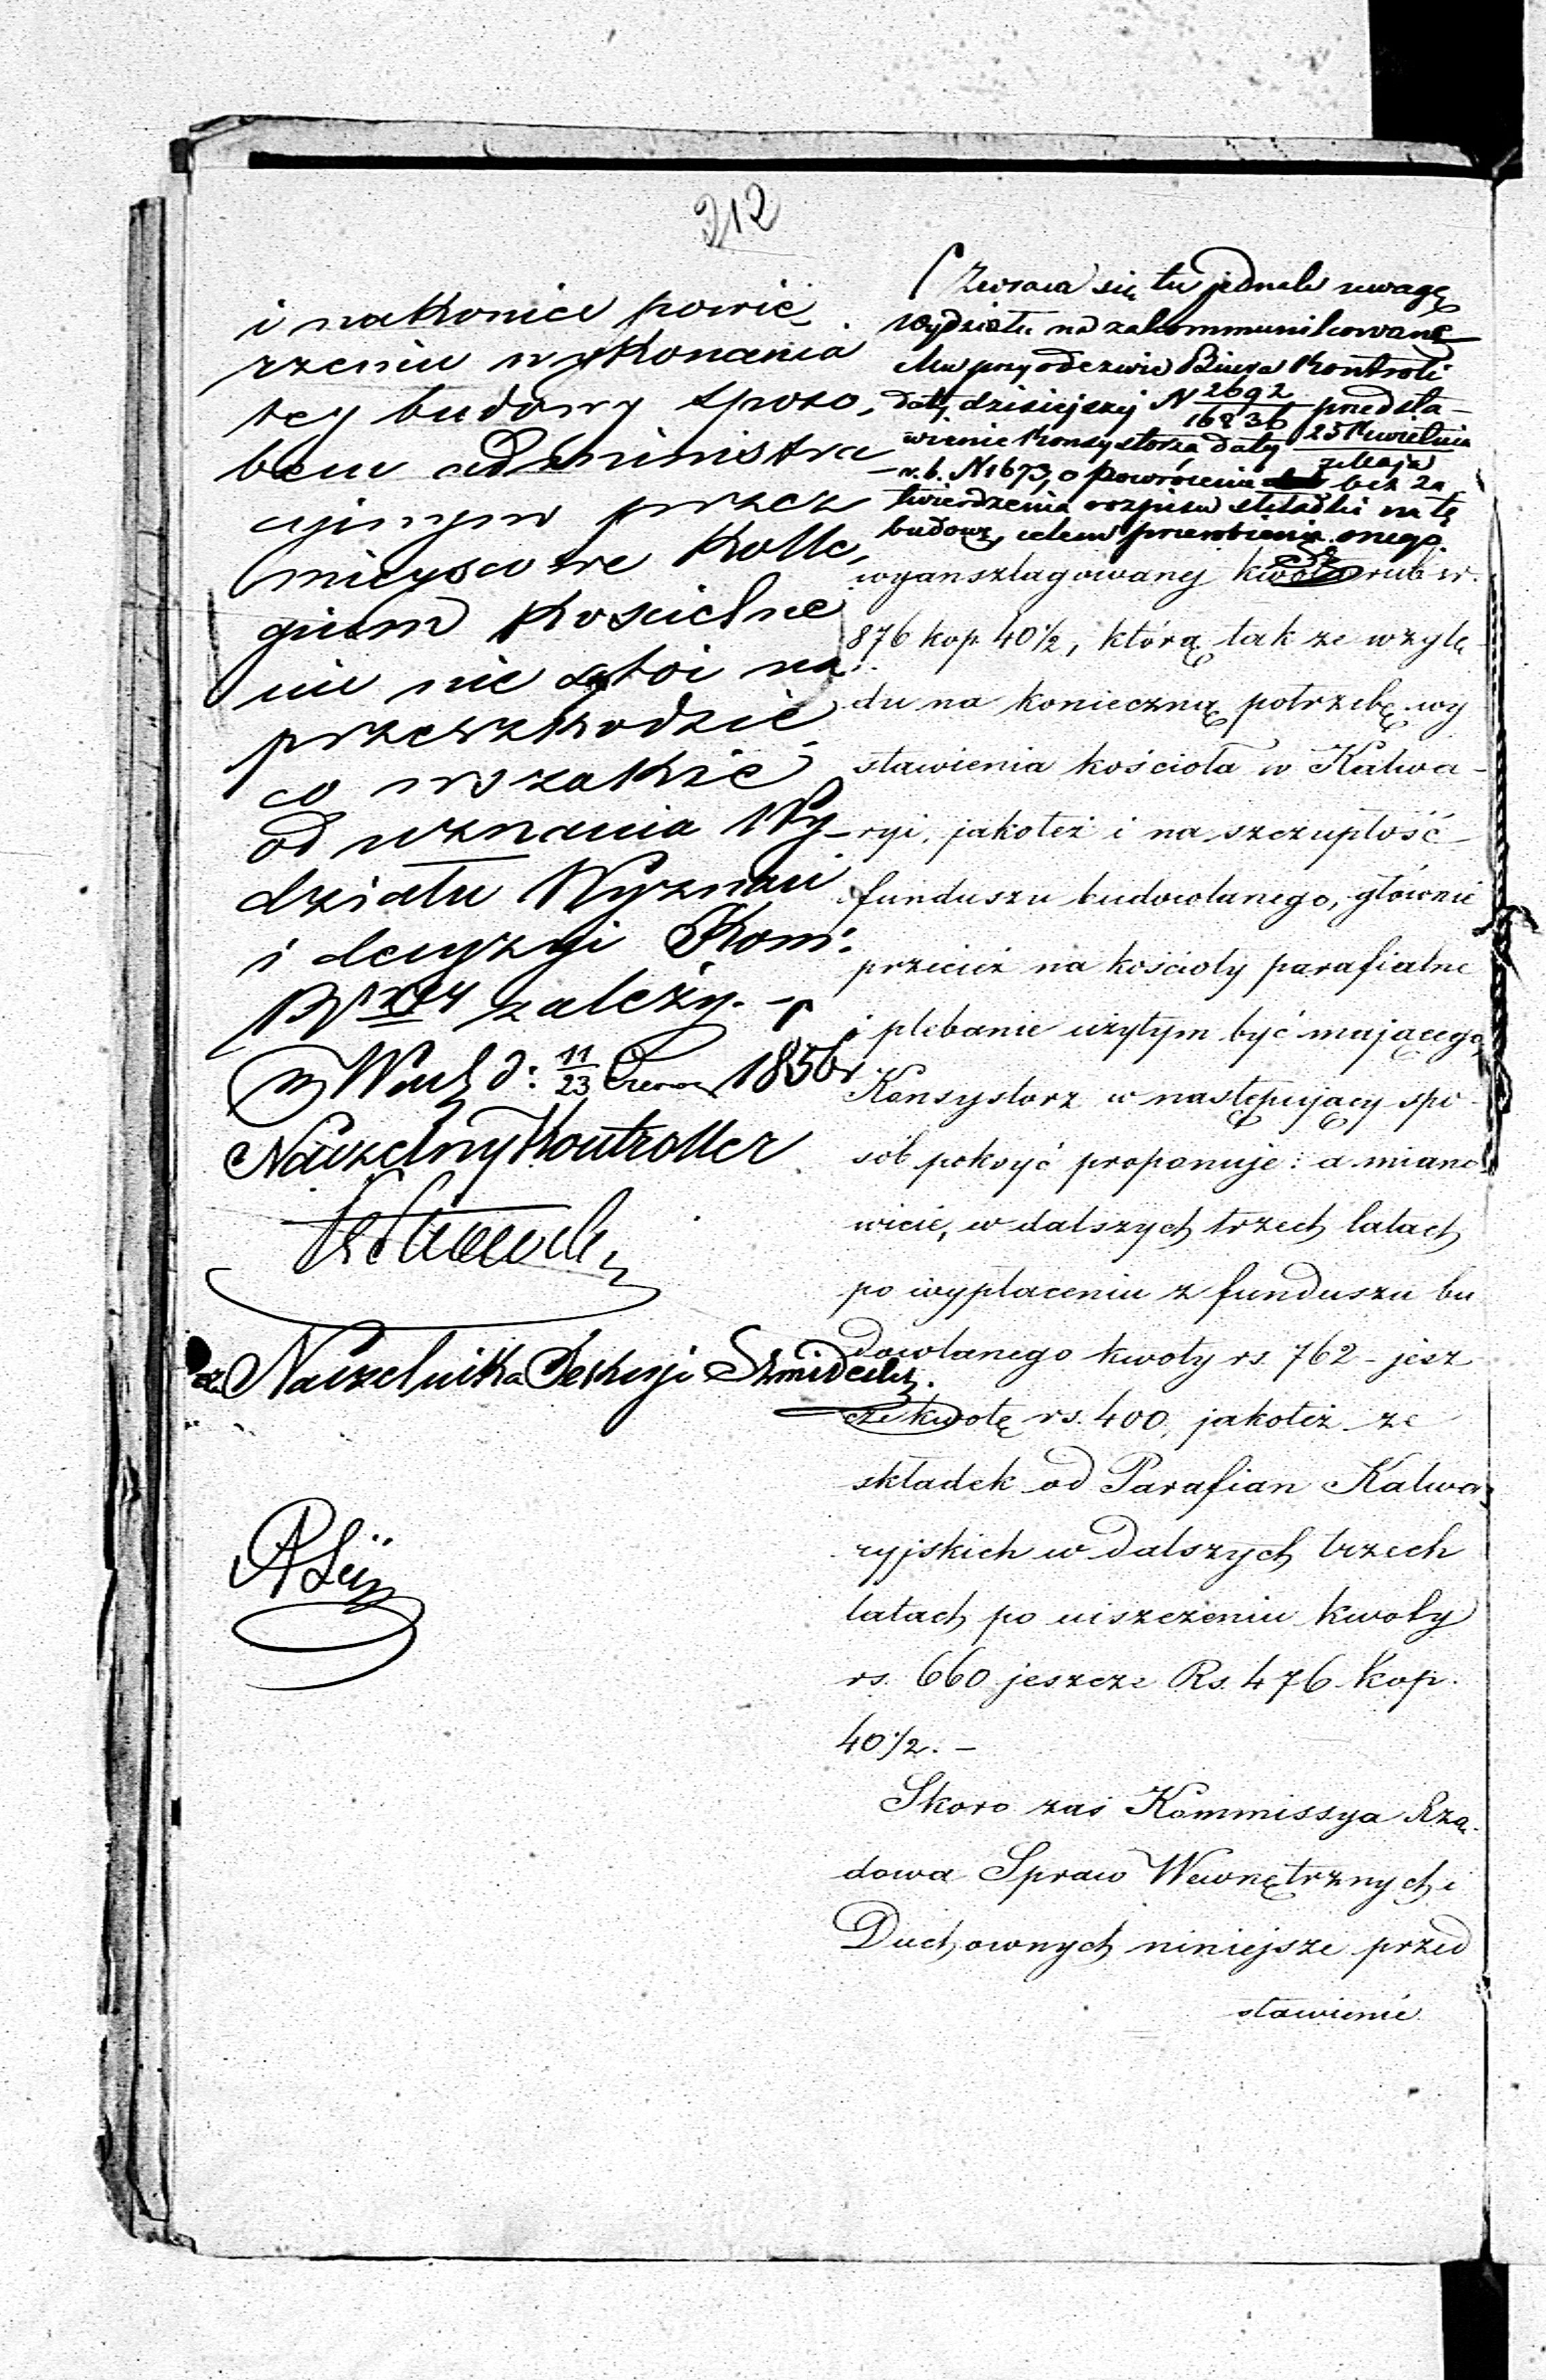 212
i nakonice powie-
rzeniu wykonania
tey budowy sposo-
bem administra
cyinym przez
mieyscowe Kolle-
gium Kościelne
nic nie stoi na
przeszkodzie
co wszakże
od uznania Wy-
działu Wyznań
i decyzyi Kom:
Rząy zależy. -
w Warsz d: 11/23 Czerwca 1856 r
Naczelny Kontroller
z. Naczelnika Sekcyi Szmideckj.
Zwraca się tu jednak uwagę
Wydziału na zakommunikowane
Mu przy odezwie Biura Kontroli
daty dzisiejszej N 2692/16836 przedsta-
wienie Konsystorza daty 25 Kwietnia/7 Maja
r. b. N 1673, o powrócenie bez za
twierdzenia rozpisu składki na tę
budowę, celem przerobienia onego.
wyanszlagowanej kwoty rub sr.
876 kop 40½, którą tak ze wzglę-
du na konieczną potrzebę wy
stawienia kościoła w Kalwa-
ryi, jakoteż i na szczupłość
funduszu budowlanego, głównie
przecież na kościoły parafialne
i plebanie użytym być mającego
Konsystorz w następujący spo-
sób pokryć proponuje: a miano
wicie, w dalszych trzech latach
po wypłaceniu z funduszu bu
dowlanego kwoty rs. 762 - jesz
cze kwotę rs. 400, jakoteż ze
składek od Parafian Kalwa-
ryjskich w dalszych trzech
latach po uiszczeniu kwoty
rs. 660 jeszcze Rs. 476 kop.
40½. -
Skoro zaś Kommissya Rzą-
dowa Spraw Wewnętrznych i
Duchownych niniejsze przed
stawienie